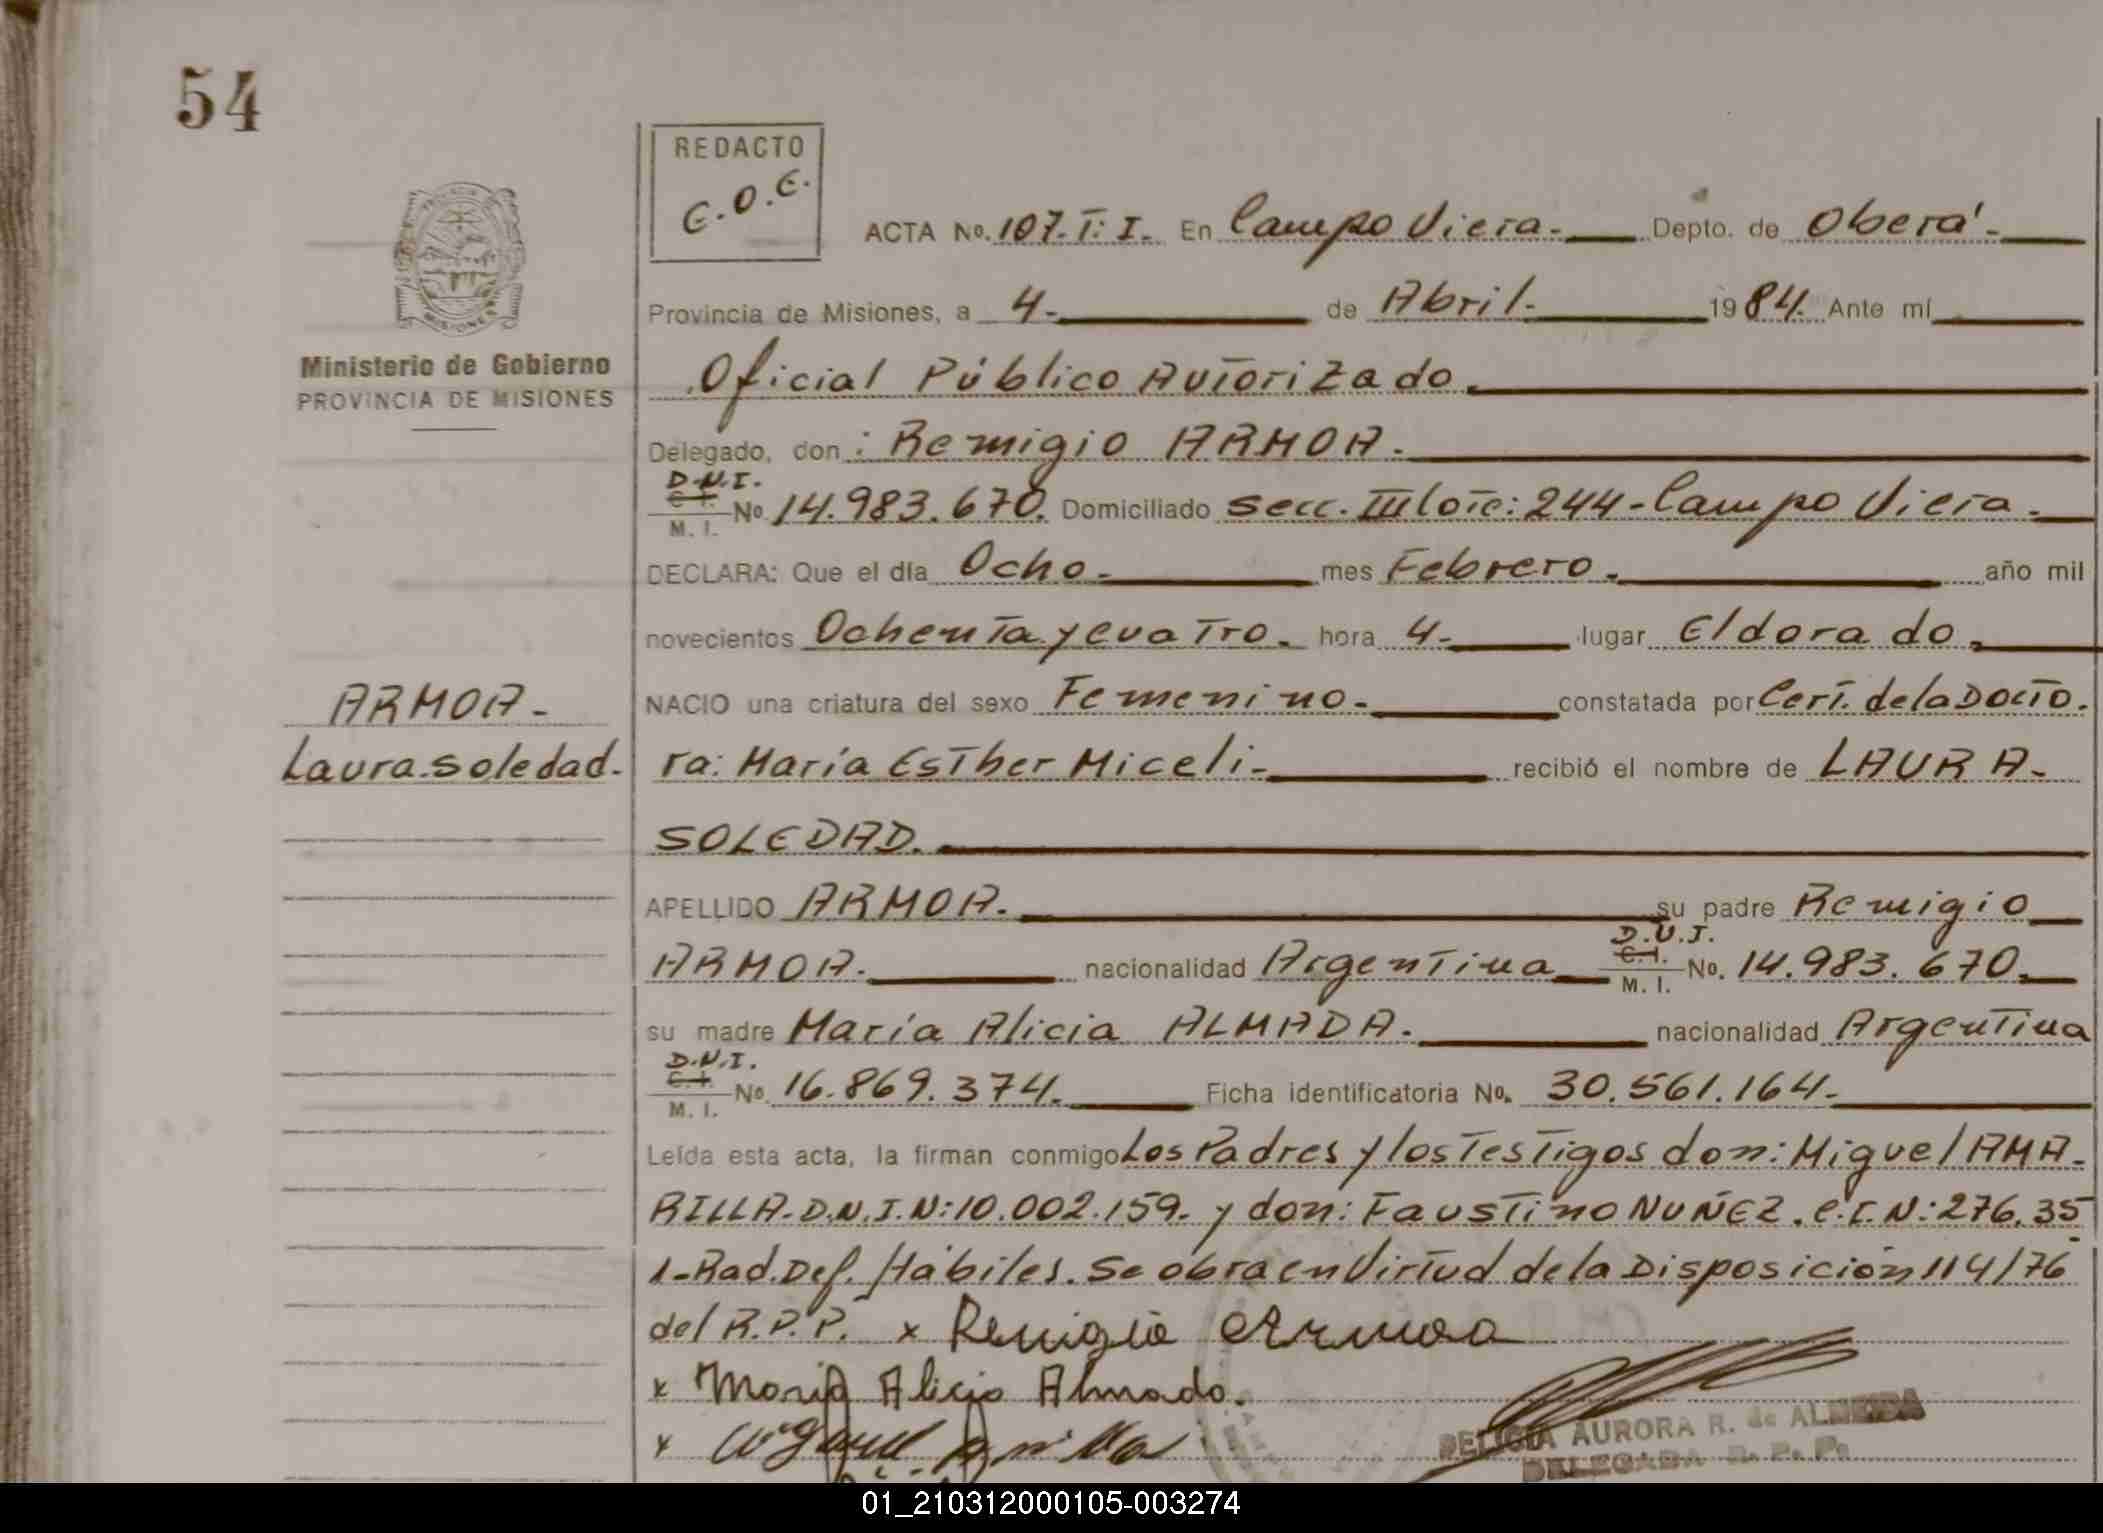 54
REDACTO
C.O.E.
ACTA No. 107.T: I. En Campo Viera.- Depto. de Oberá.-
Provincia de Misiones, a 4.- de Abril.- 1984. Ante mí
Oficial Público Autorizado.
MISIONES
Ministerio de Gobierno
PROVINCIA DE MISIONES
Delegado, don: Remigio ARMOA.-
D.N.I.
C. I.
M. I.
No. 14.983.670. Domiciliado secc. III lote: 244-Campo Viera.-
DECLARA: Que el día Ocho.- mes Febrero.- año mil
novecientos Ochenta y cuatro. hora 4.- lugar Eldorado.
ARMOA-
Laura.Soledad.
NACIO una criatura del sexo Femenino.- constatada por Cert. de la Docto.
ra: María Esther Miceli.- recibió el nombre de LAURA-
SOLEDAD.
APELLIDO ARMOA.- su padre Remigio
ARMOA.- nacionalidad Argentina D.N.I. C.I. M. I. No. 14.983.670.
su madre María Alicia ALMADA.- nacionalidad Argentina
D.N.I.
C.I.
M. I.
No. 16.869.374. Ficha identificatoria No. 30.561.164.-
Leída esta acta, la firman conmigo Los Padres y los Testigos don: Miguel AMA-
RILLA-D.N.I.N:10.002.159.- y don: Faustino NUÑEZ. C.I.N:276.35
1-Rad.Def. Hábiles. Se obra en Virtud de la Disposición 114/76
del R.P.P. x Remigio Armoa
x Maria Alicia Almada.
x
DELICIA AURORA R. de ALMEIDA
DELEGADA R. P. P.
01_210312000105-003274